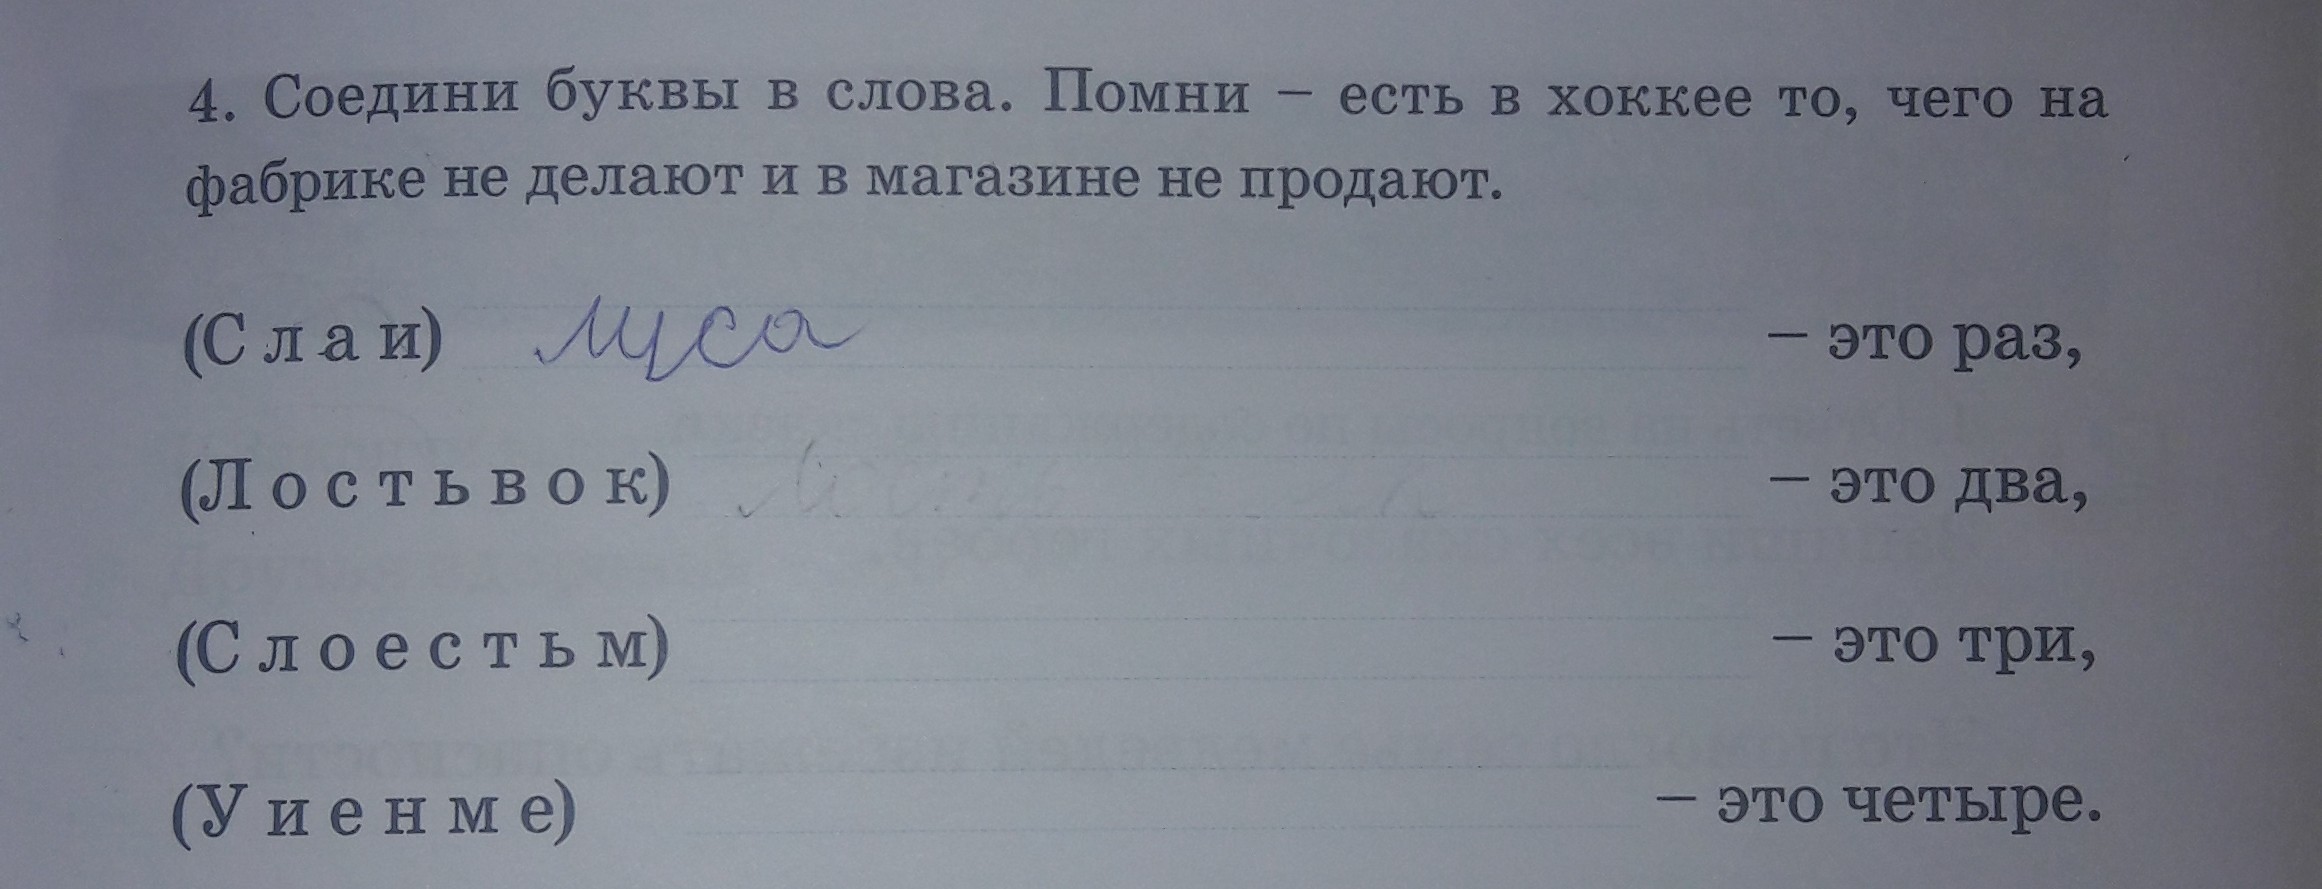 4. Соедини буквы в слова. Помни – есть в хоккее то, чего на
фабрике не делают и в магазине не продают.
(С л а и) луса – это раз,
(Л о с т ь в о к) – это два,
(С л о е с т ь м) – это три,
(У и е н м е) – это четыре.